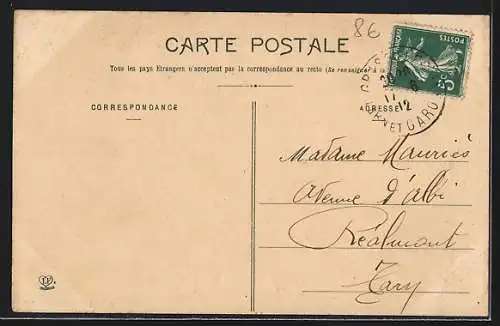 86
CARTE POSTALE
Tous les pays Etrangers n'acceptent pas la correspondance au recto (Se renseigner à la
CORRESPONDANCE
ADRESSE
POSTES
5c
17 6
12
ET GARO
Madame Mauriès
Avenue d'Albi
Réalmont
Tarn